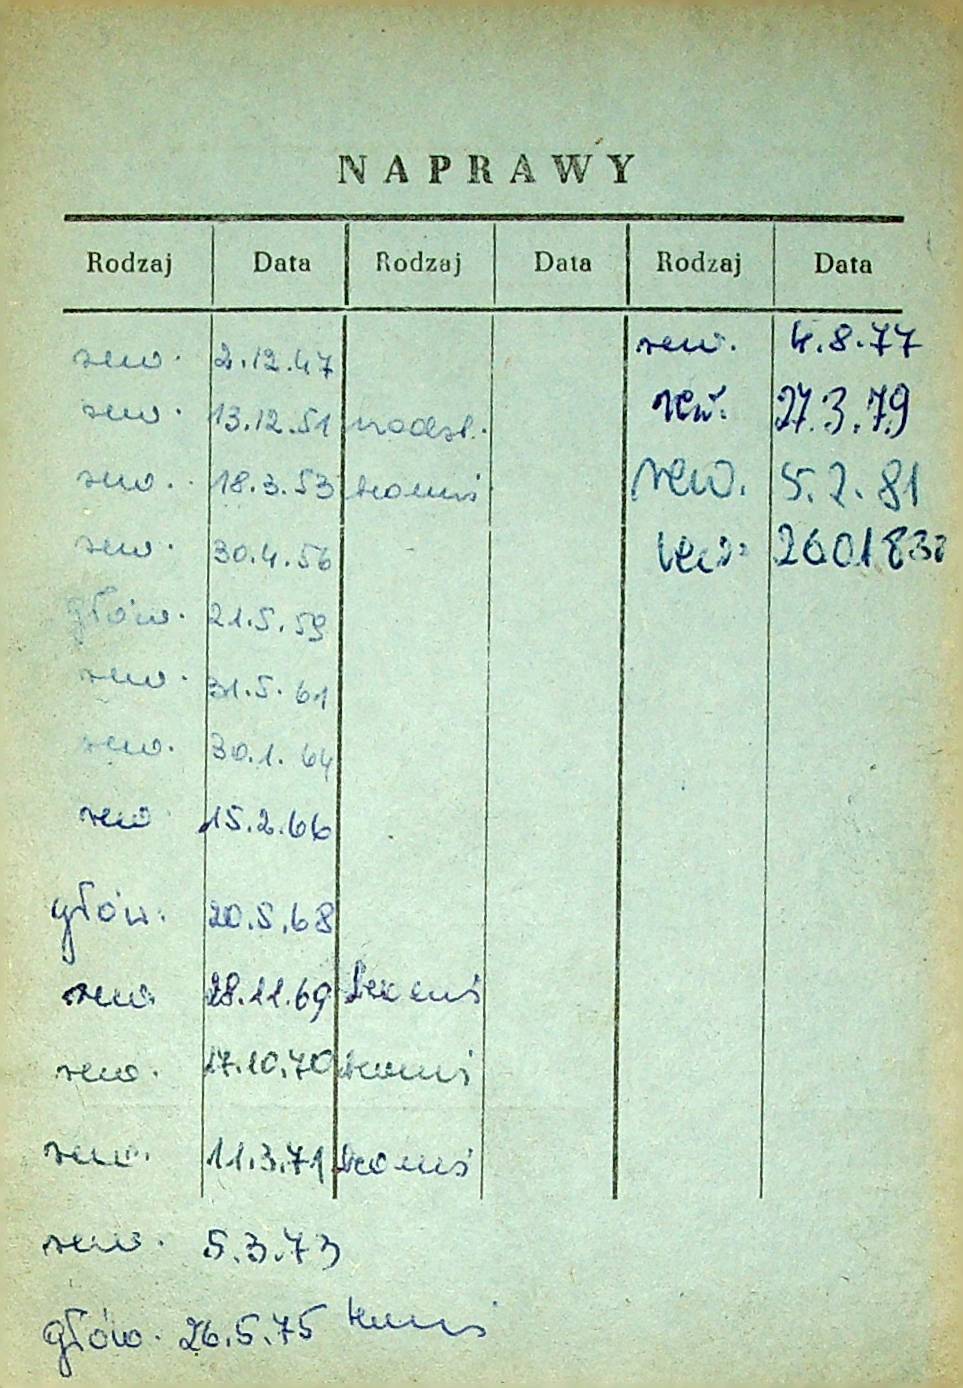 NAPRAWY
Rodzaj Data Rodzaj Data Rodzaj Data
rew. 2.12.47 rew. 4.8.77
rew. 13.12.51 rew. 27.3.79
rew. 18.3.53 rew. 5.2.81
rew. 30.4.56
głów. 21.5.59
rew. 31.5.61
rew. 30.1.64
rew 15.2.66
głów. 20.5.68
rew. 28.11.69
rew. 17.10.70
rew. 11.3.71
rew. 5.3.73
głów. 26.5.75